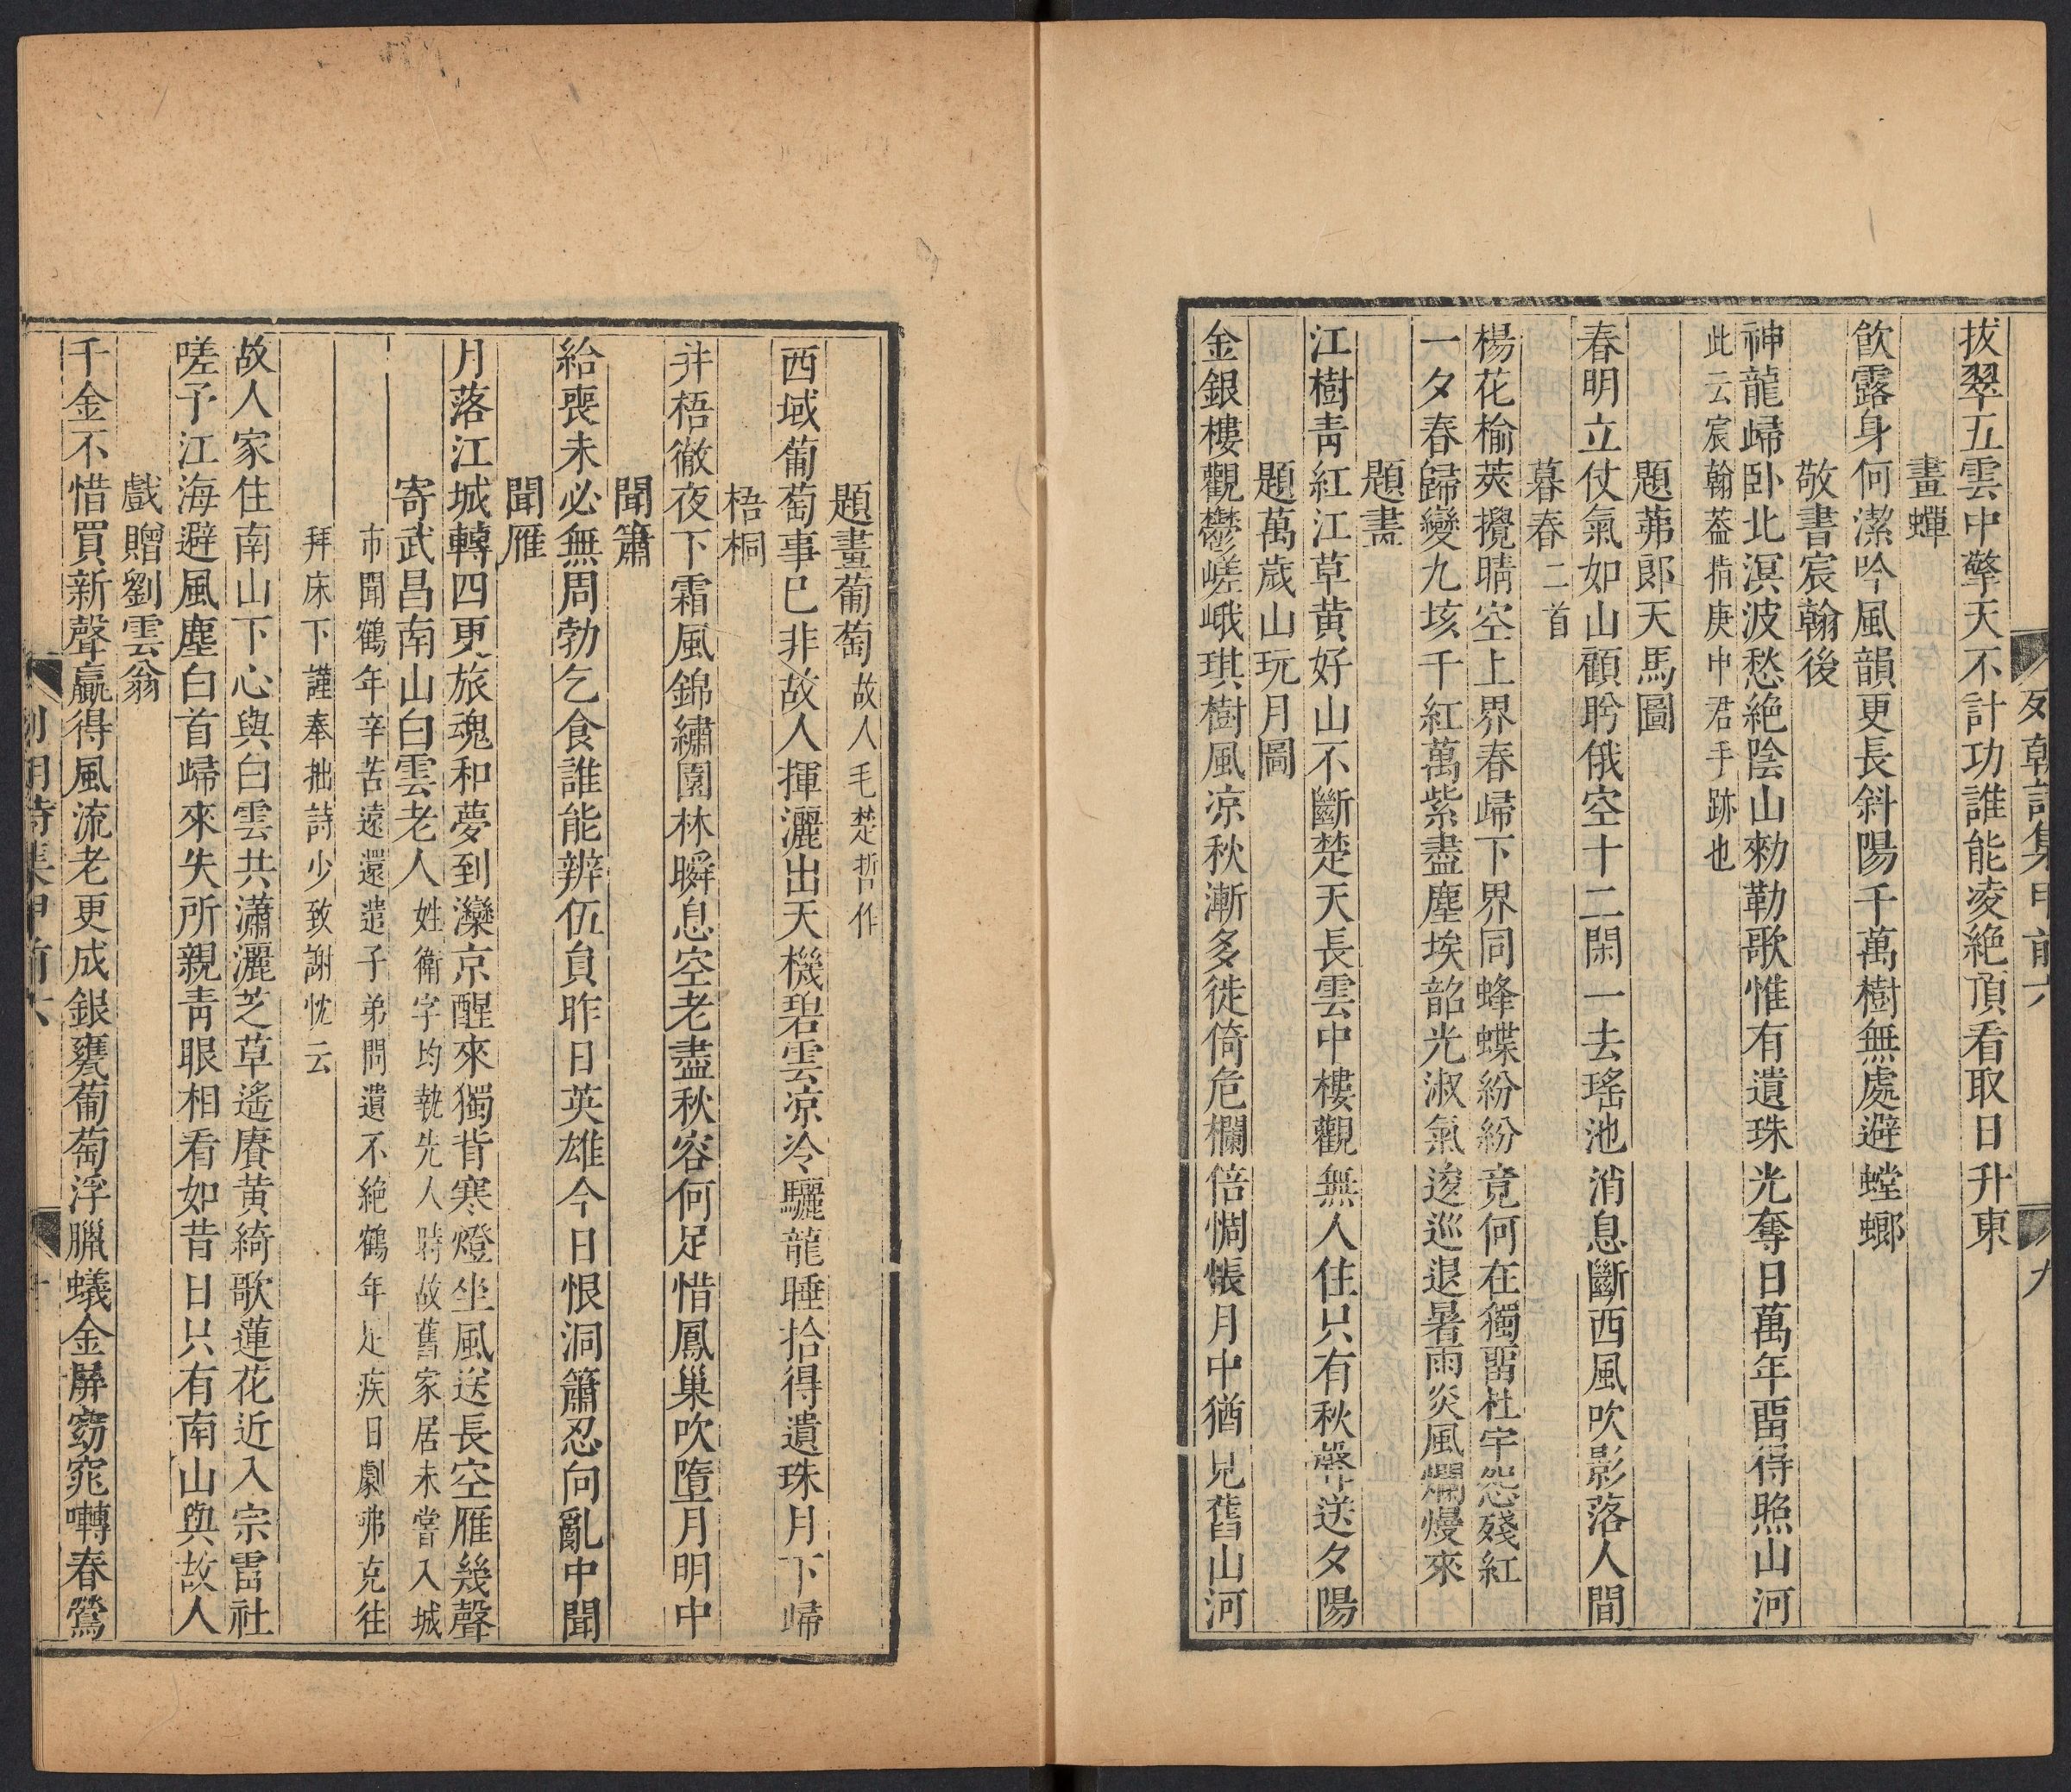 列朝詩集甲前六 九
拔翠五雲中擎天不計功誰能凌絕頂看取日升東
畫蟬
飲露身何潔吟風韻更長斜陽千萬樹無處避螳螂
敬書宸翰後
神龍歸卧北溟波愁絕陰山勑勒歌惟有遺珠光奪日萬年畱得照山河
此云宸翰葢指庚申君手跡也
題茀郎天馬圖
春明立仗氣如山顧盻俄空十二閑一去瑤池消息斷西風吹影落人間
暮春二首
楊花榆莢攪晴空上界春歸下界同蜂蝶紛紛竟何在獨畱杜宇怨殘紅
一夕春歸變九垓千紅萬紫盡塵埃韶光淑氣逡巡退暑雨炎風爛熳來
題畵
江樹靑紅江草黄好山不斷楚天長雲中樓觀無人住只有秋聲送夕陽
題萬歲山玩月圖
金銀樓觀鬱嵯峨琪樹風凉秋漸多徙倚危欄倍惆悵月中猶見舊山河
題畫葡萄故人毛楚哲作
西域葡萄事已非故人揮灑出天機碧雲凉冷驪龍睡拾得遺珠月下歸
梧桐
井梧徹夜下霜風錦繡園林瞬息空老盡秋容何足惜鳳巢吹墮月明中
聞簫
給喪未必無周勃乞食誰能辨伍員昨日英雄今日恨洞簫忍向亂中聞
聞雁
月落江城轉四更旅魂和夢到灤京醒來獨背寒燈坐風送長空雁幾聲
寄武昌南山白雲老人姓衛字均執先人時故舊家居未嘗入城
市聞鶴年辛苦遠還遣子弟問遺不絕鶴年足疾日劇弗克往
拜床下謹奉拙詩少致謝忱云
故人家住南山下心與白雲共瀟灑芝草遙賡黄綺歌蓮花近入宗雷社
嗟予江海避風塵白首歸來失所親靑眼相看如昔日只有南山與故人
戲贈劉雲翁
千金不惜買新聲贏得風流老更成銀甕葡萄浮臘蟻金屏窈窕囀春鶯
列朝詩集甲前六 十